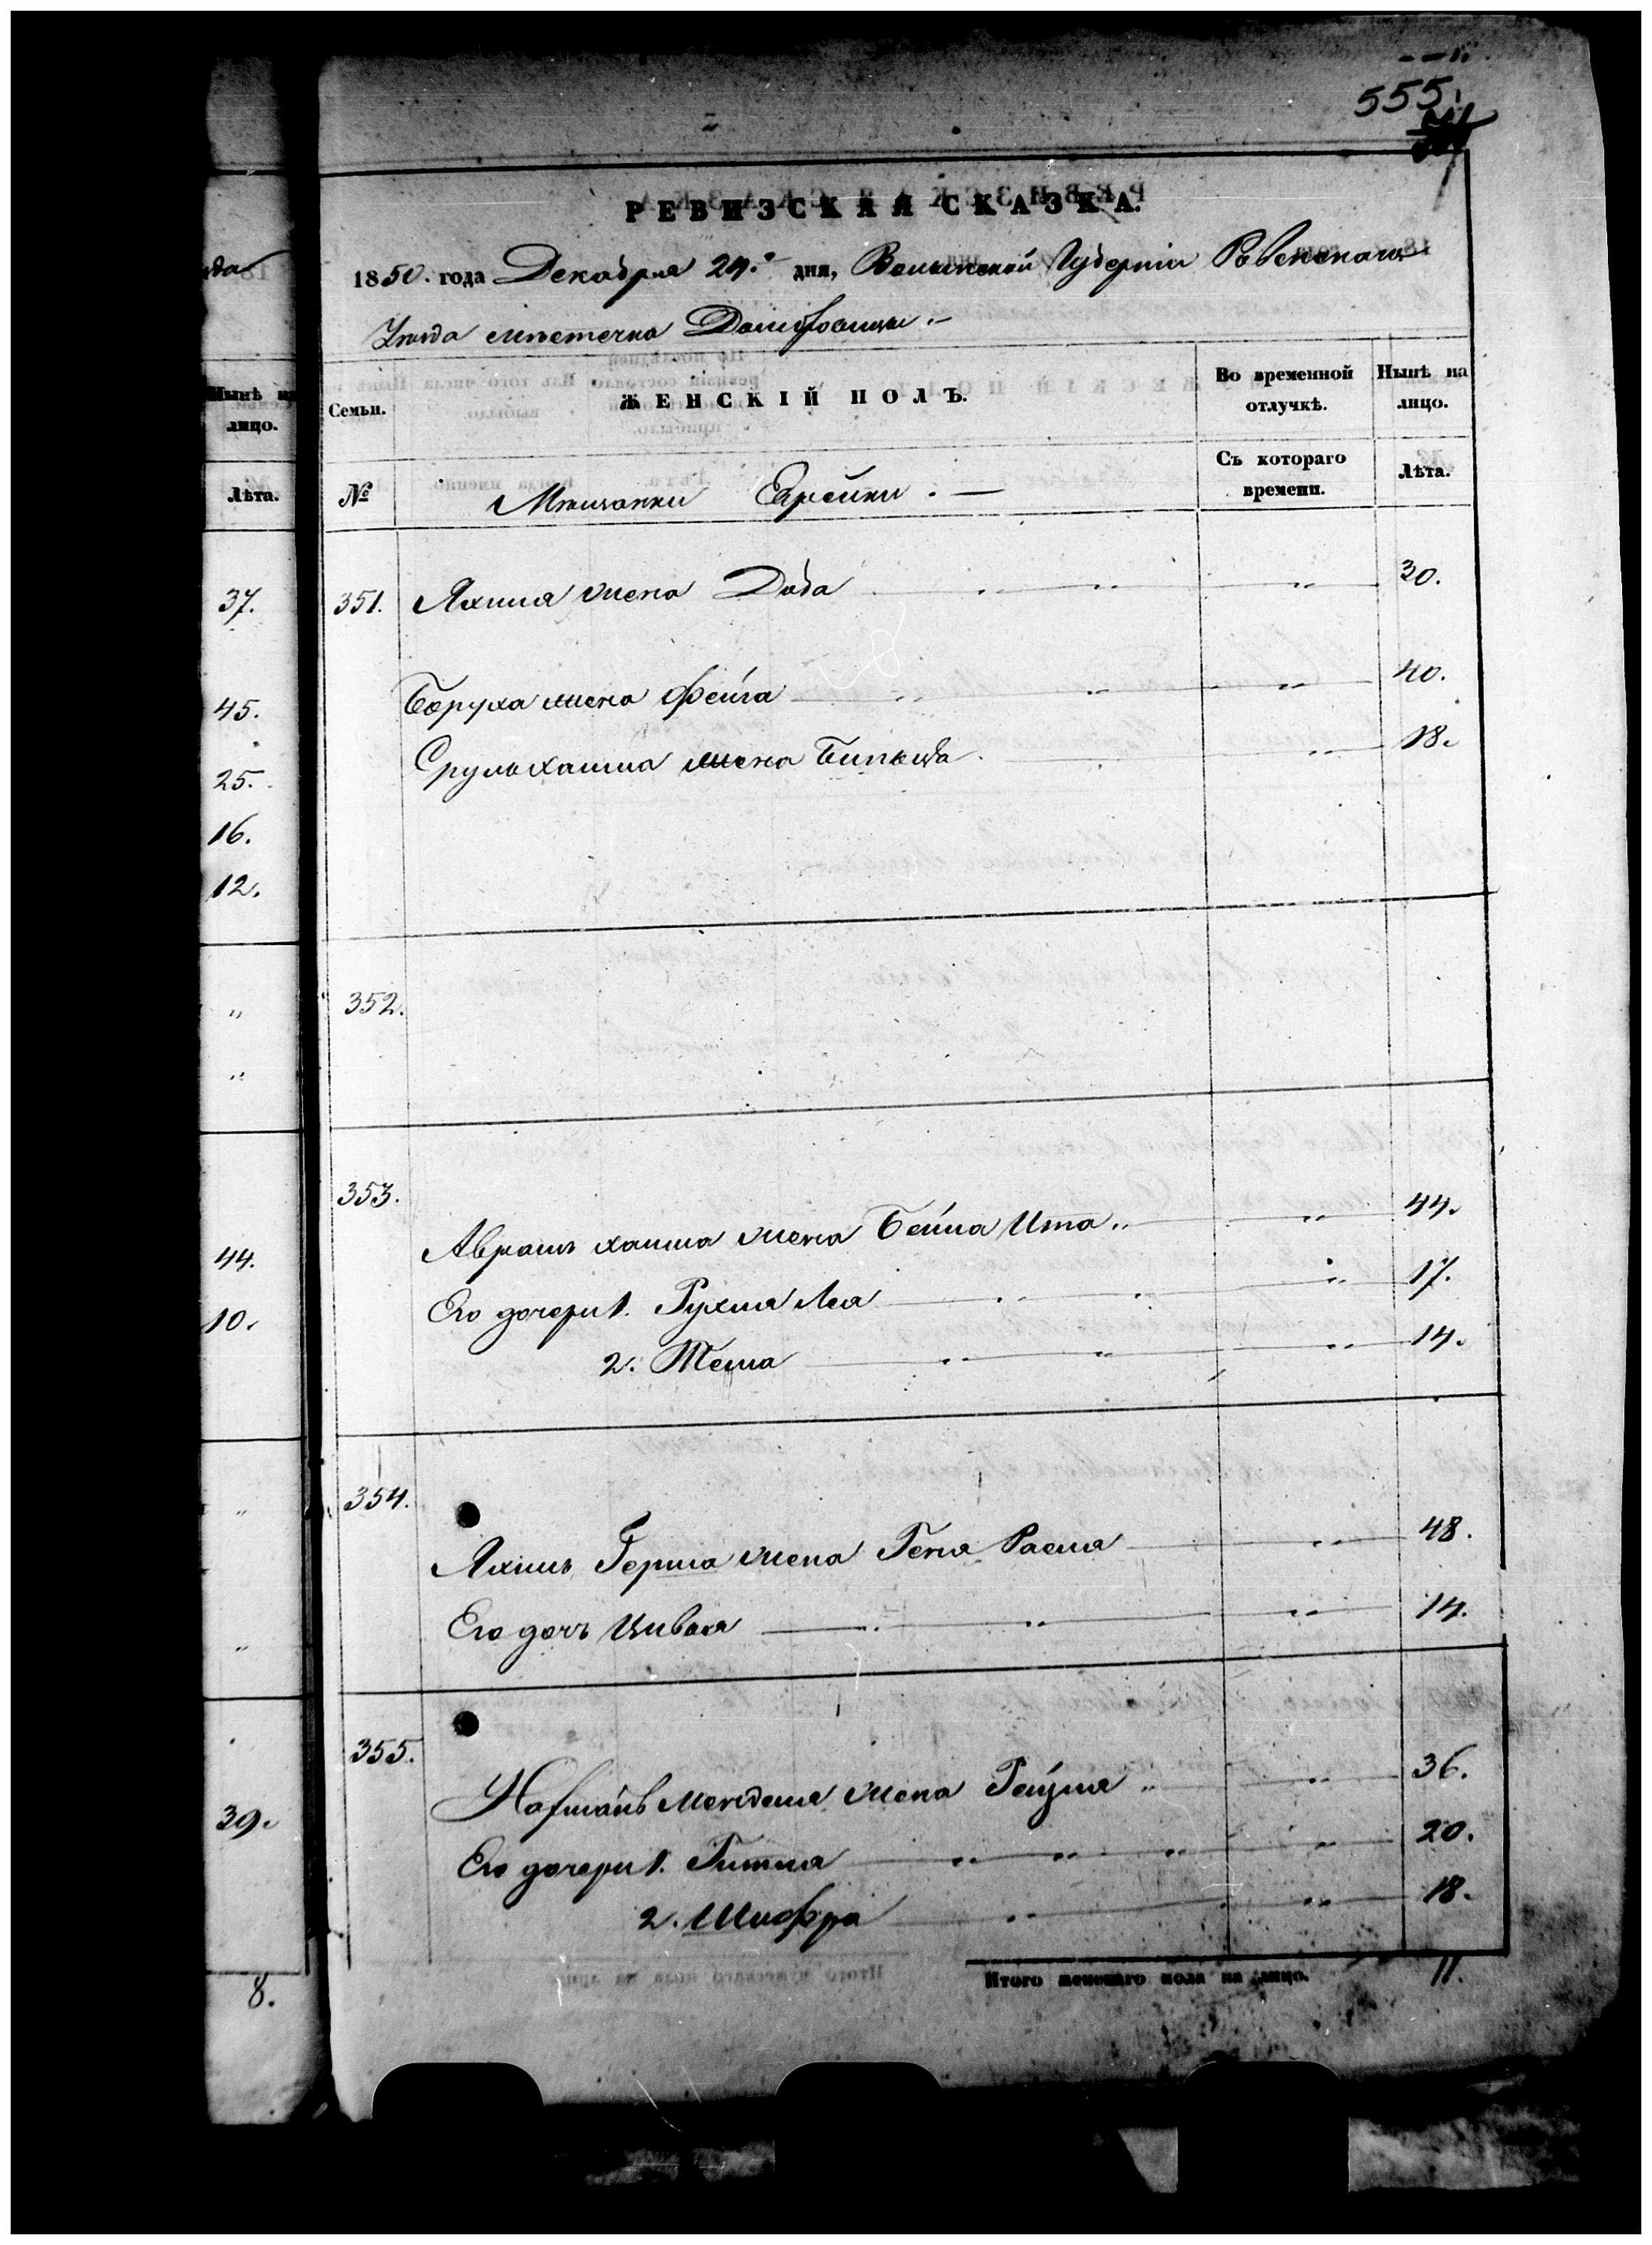 555.
РЕВИЗСКАЯ СКАЗКА.
1850. года Декабря 24.го дня, Волынской Губерніи Ровенскаго
Уѣзда мѣстечка Домбровицы.
Нынѣ на лицо.
Лѣта.
37.
45.
25.
16.
12.
"
"
44.
10.
"
"
39.
8.
Семьи.
ЖЕНСКІЙ ПОЛЪ.
Во временной отлучкѣ.
Нынѣ на лицо.
№
Мѣщанки Еврейки.
Съ котораго времени.
Лѣта.
351. Яхима жена Доба " " " 30.
Боруха жена Фейга " " " 40.
Срульхаима жена Биньца " 18.
352.
353.
Аврамъ хаима жена Бейла Ита " " 44.
Его дочери 1. Рухля Лея " " " 17.
2. Тема " " " 14.
354.
Герша жена Геня Расля " 48.
Его дочь Цивья " " " 14.
355.
Менделя жена Рейзля " " 36.
Его дочери 1. Гитля " " " " 20.
2. Шифра " " 18.
Итого женскаго пола на лицо. 11.